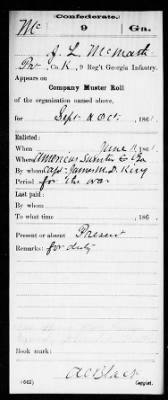 Confederate.
Mc 9 Ga.
J. L. McMath
Pvt, Co. K, 9 Reg't Georgia Infantry.
Appears on
Company Muster Roll
of the organization named above,
for Sept & Oct, 1861.
Enlisted:
When June 11, 1861.
Where Americus Sumter Co Ga
By whom Capt. James M. D. King
Period for the war
Last paid:
By whom
To what time , 186 .
Present or absent Present
Remarks: for duty
Book mark:
(642) Copyist.